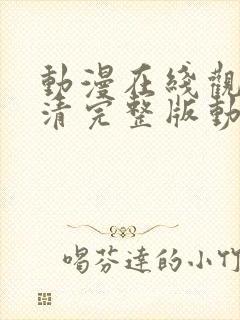 動漫在綫觀
清完整版動
喝芬達的小竹